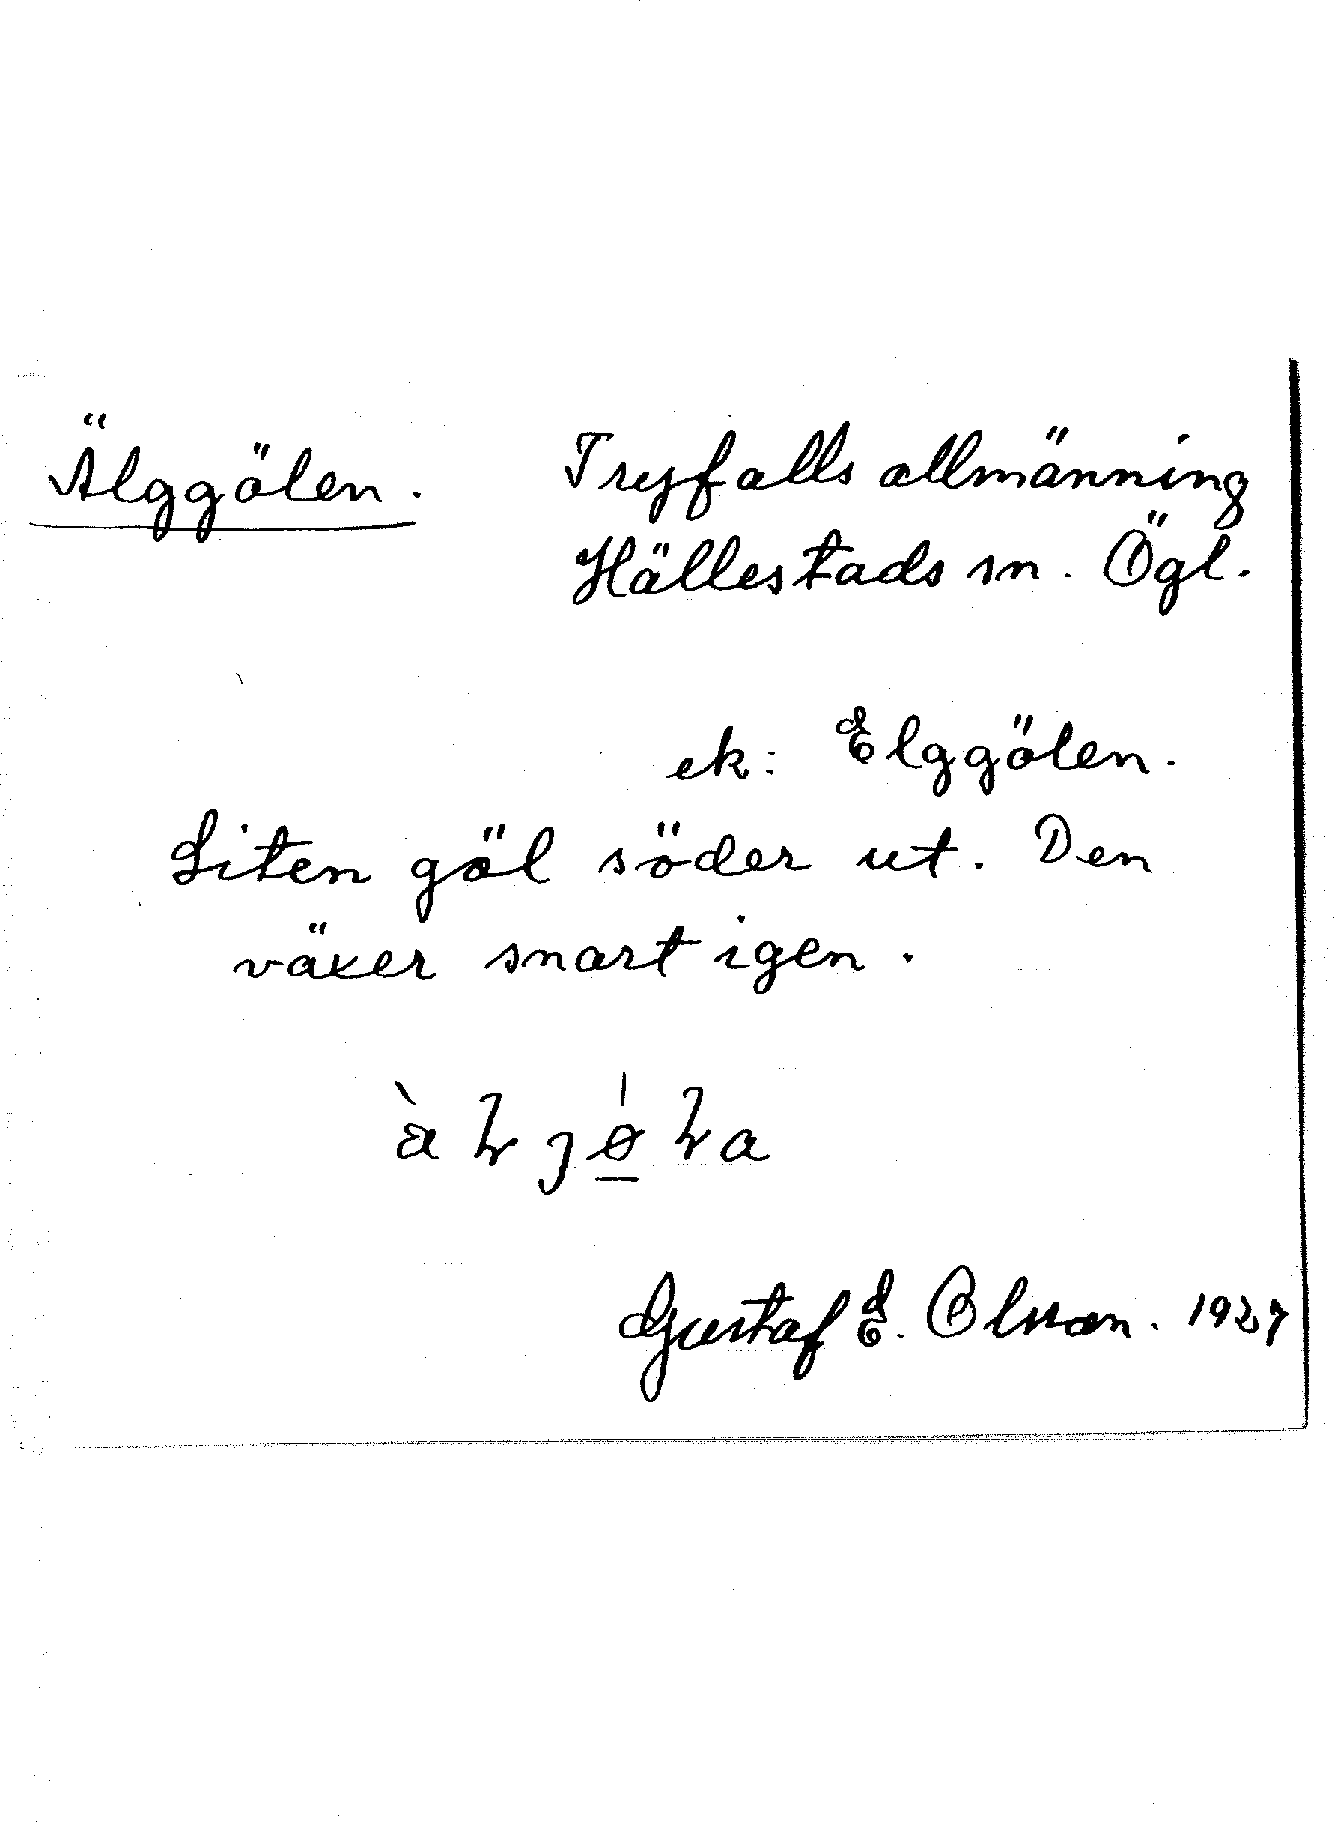 Älggölen. Tryfalls allmänning
Hällestads sn. Ögl.
ek: Elggölen.
Liten göl söder ut. Den
växer snart igen.
Gustaf E. Olsson. 1927